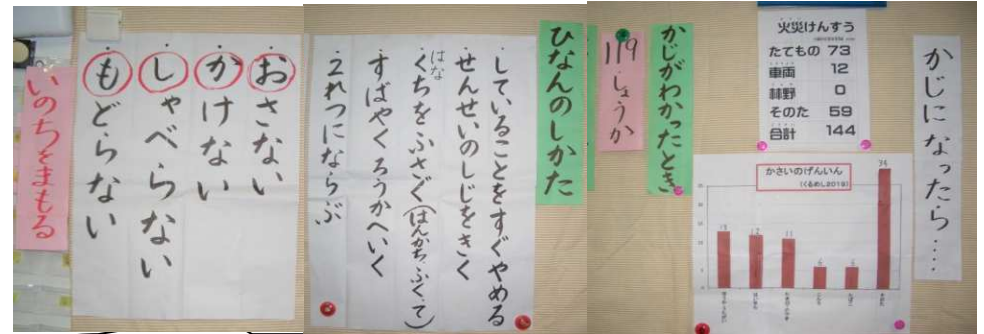 かじになったら‥‥
火災けんすう
たてもの 73
車両 12
林野 0
そのた 59
合計 144
かさいのげんいん
(くるめし2019)
13
12
11
34
かじがわかったとき
119
・しょうか
ひなんのしかた
・していることをすぐやめる
・せんせいのしじをきく
・はなくちをふさぐ(はんかち、ふく、て)
・すばやくろうかへいく
・2れつにならぶ
・おさない
・かけない
・しゃべらない
・もどらない
いのちをまもる